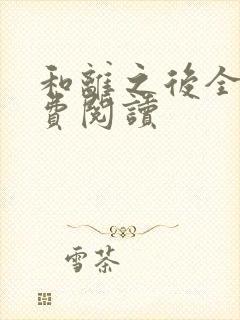 和離之後全
費閱讀
雪茶